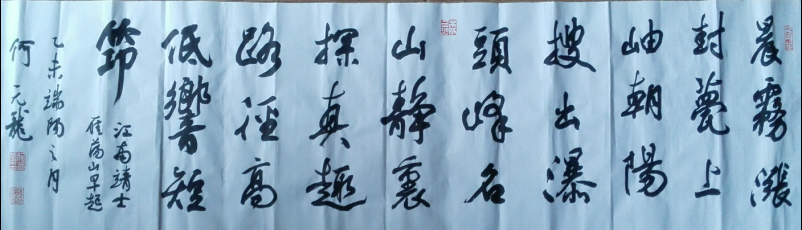 晨霧漲
封甍上
岫朝陽
搜出瀑
頭峰名
山靜裏
探真趣
路徑高
低響短
筇
江南靖士
雁蕩山早起
乙未端陽之月
何元龍